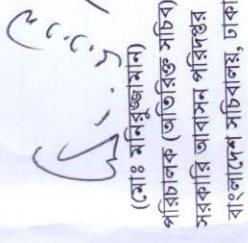 (মোঃ মনিরুজ্জামান)
পরিচালক (অতিরিক্ত সচিব)
সরকারি আবাসন পরিদপ্তর
বাংলাদেশ সচিবালয়, ঢাকা